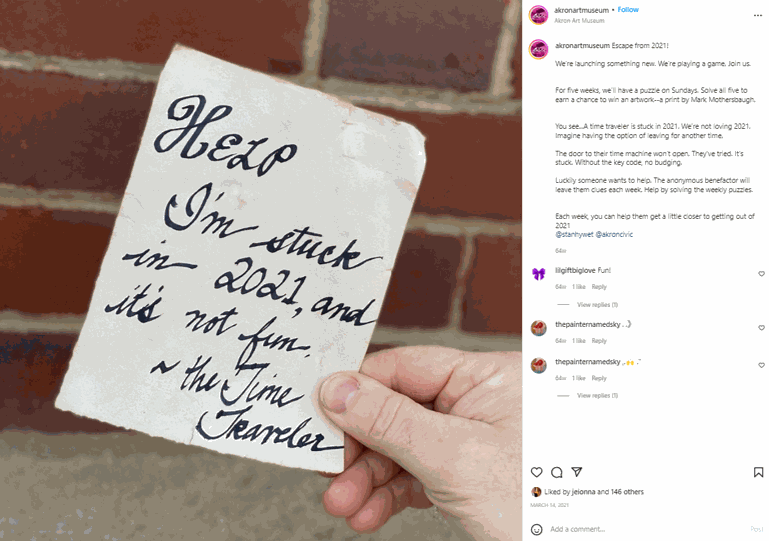 HELP
I'm stuck
in 2021, and
it's not fun.
~ the Time
Traveler
akronartmuseum • Follow
Akron Art Museum
akronartmuseum Escape from 2021!
We're launching something new. We're playing a game. Join us.
For five weeks, we'll have a puzzle on Sundays. Solve all five to
earn a chance to win an artwork--a print by Mark Mothersbaugh.
You see...A time traveler is stuck in 2021. We're not loving 2021.
Imagine having the option of leaving for another time.
The door to their time machine won't open. They've tried. It's
stuck. Without the key code, no budging.
Luckily someone wants to help. The anonymous benefactor will
leave them clues each week. Help by solving the weekly puzzles.
Each week, you can help them get a little closer to getting out of
2021
@stanhywet @akroncivic
64w
lilgiftbiglove Fun!
64w 1 like Reply
View replies (1)
thepainternamedsky . .》
64w 1 like Reply
thepainternamedsky
64w 1 like Reply
View replies (1)
Liked by jeionna and 146 others
MARCH 14, 2021
Add a comment...
Post